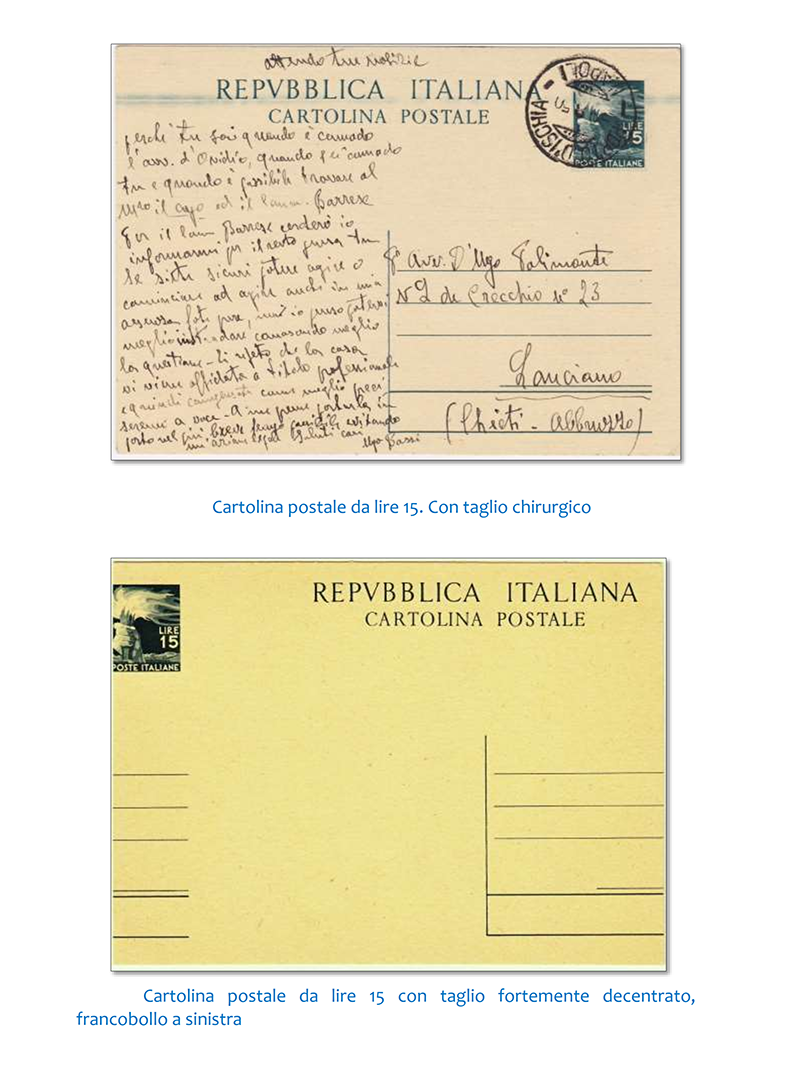 attendo tue notizie
REPVBBLICA ITALIANA
CARTOLINA POSTALE
LIRE
15
POSTE ITALIANE
D'ISCHIA
perché tu sai quando è comodo
l'avv. d'Ovidio, quando è comodo
tu e quando è possibile trovare al
il capo ed il Barrese
Per il Barrese vederò io
informarmi per il resto pensa tu
Se siete sicuri potere agire o
cominciare ad agire anche in mia
assenza fate pure, io penso potervi
meglio conoscendo meglio
la questione - Ti ripeto che la cosa
vi viene affidata a titolo professionale
e quindi come meglio
a voce - A me preme portarla in
porto nel più breve tempo possibile evitando
Saluti cari
Ugo Bassi
Avv. D'Ugo Palimonte
de Crecchio n° 23
Lanciano
(Chieti - Abbruzzo)
Cartolina postale da lire 15. Con taglio chirurgico
REPVBBLICA ITALIANA
CARTOLINA POSTALE
LIRE
15
POSTE ITALIANE
Cartolina postale da lire 15 con taglio fortemente decentrato,
francobollo a sinistra